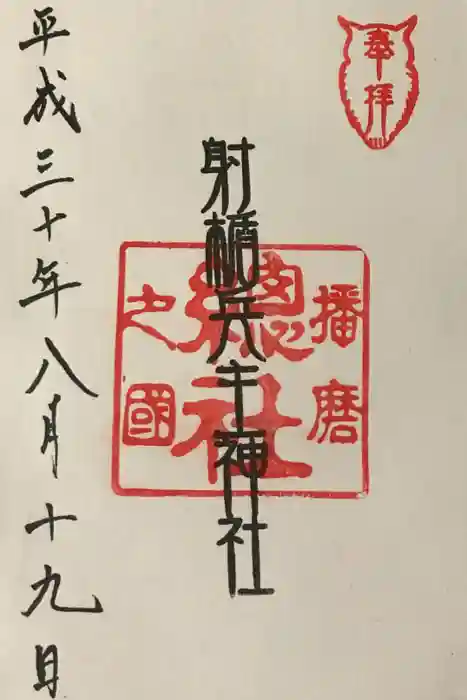 奉拝
播磨
之國
總社
射楯兵主神社
平成三十年八月十九日